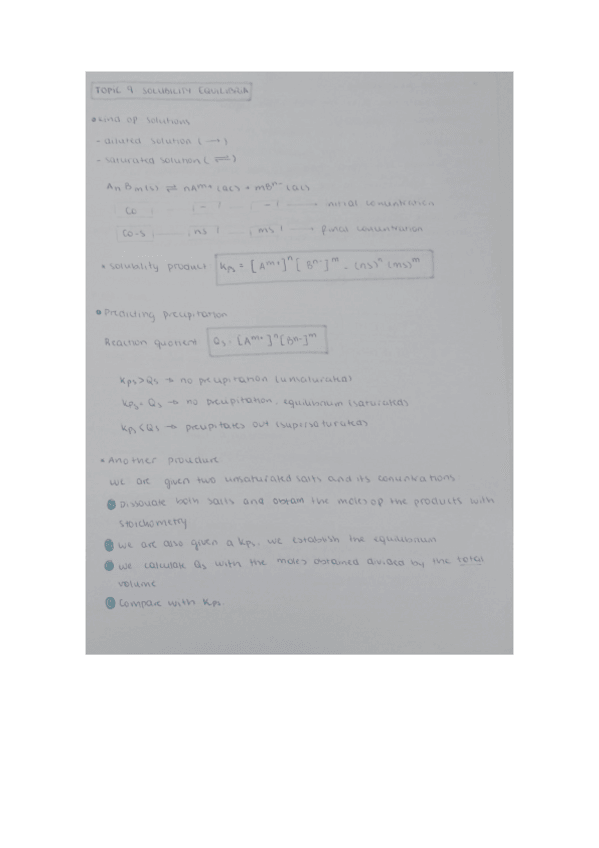 TOPIC 9 SOLUBILITY EQUILIBRIA
• Kind of solutions
- diluted solution (→)
- saturated solution (⇌)
AnBm(s) ⇌ nAm+ (ac) + mBn- (ac)
Co - - → initial concentration
Co-s ns ms → final concentration
* Solubility product Kps = [Am+]n [Bn-]m = (ns)n (ms)m
• Predicting precipitation
Reaction quotient Qs = [Am+]n [Bn-]m
Kps > Qs → no precipitation (unsaturated)
Kps = Qs → no precipitation, equilibrium (saturated)
Kps < Qs → precipitates out (supersaturated)
* Another procedure
we are given two unsaturated salts and its concentrations
Dissociate both salts and obtain the moles of the products with
stoichometry
we are also given a Kps, we establish the equilibrium
we calculate Qs with the moles obtained divided by the total
volume
Compare with Kps